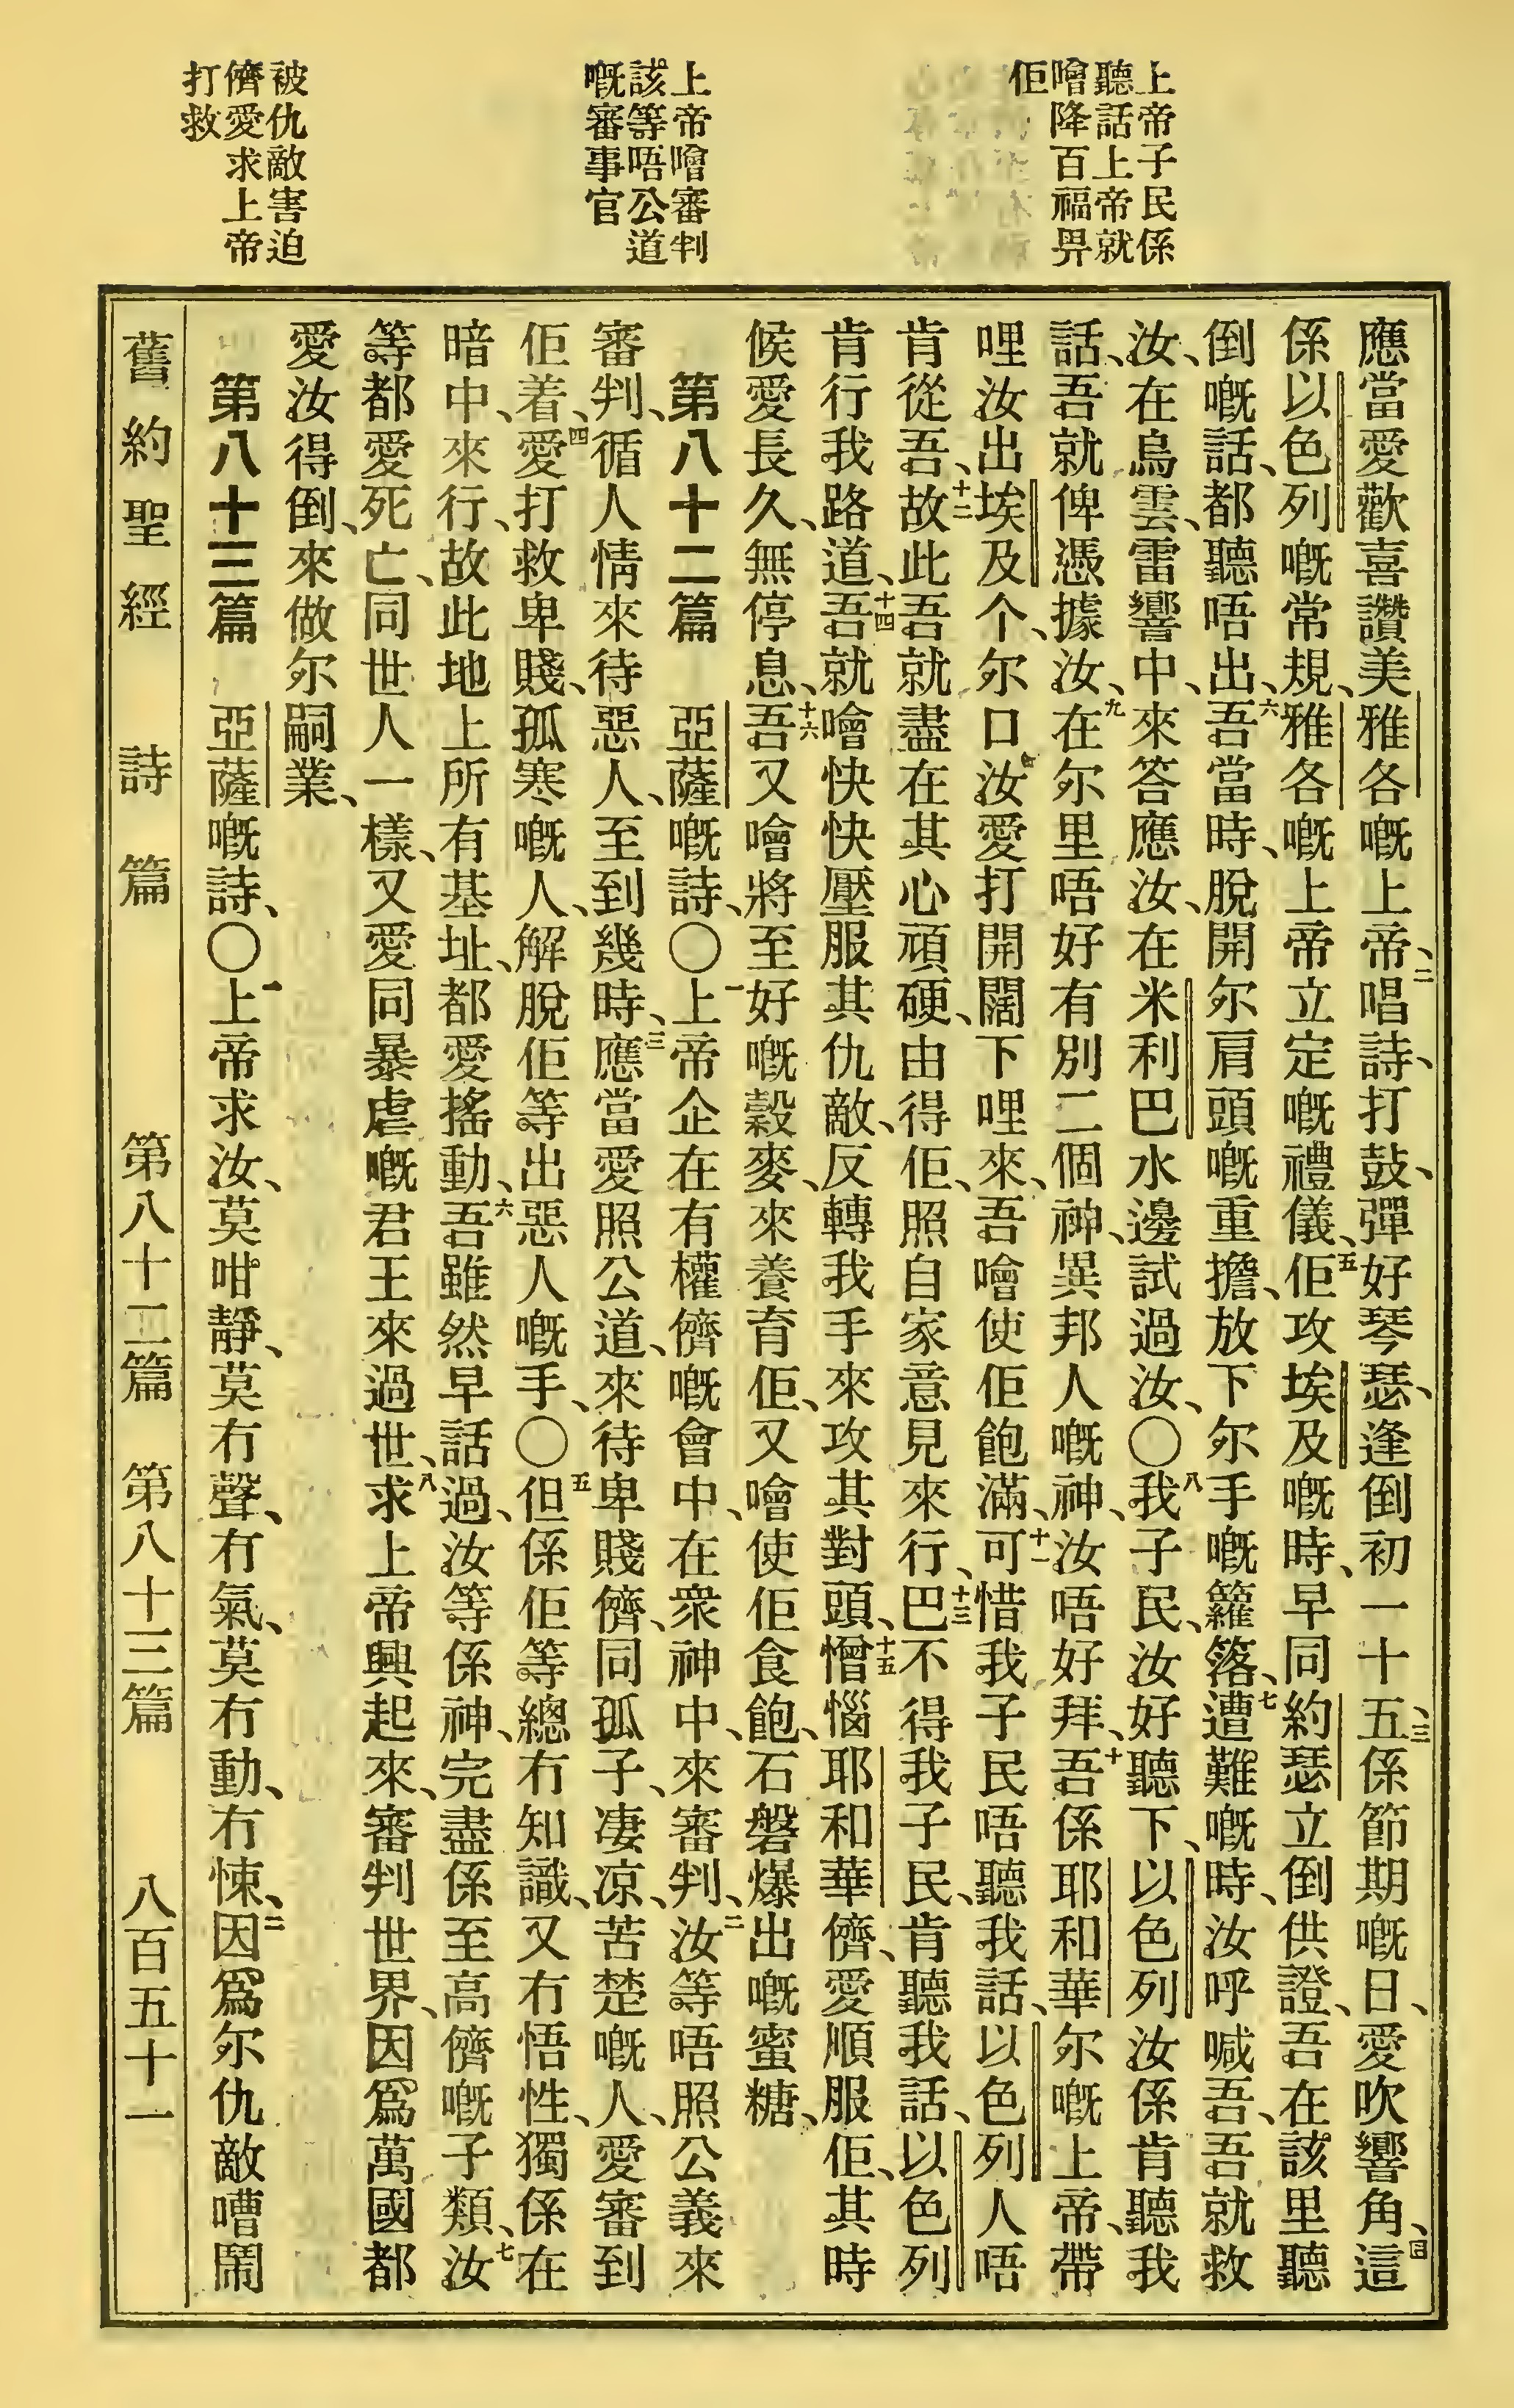 上帝子民係
聽話上帝就
噲降百福畀
佢
上帝噲審判
該等唔公道
嘅審事官
被仇敵害迫
儕愛求上帝
打救
應當愛歡喜讚美雅各嘅上帝、二唱詩、打鼓、彈好琴瑟、逢倒初一十五、三係節期嘅日、愛吹響角、四這
係以色列嘅常規、雅各嘅上帝立定嘅禮儀、五佢攻埃及嘅時、早同約瑟立倒供證、吾在該里聽
倒嘅話、都聽唔出、六吾當時、脫開尔肩頭嘅重擔、放下尔手嘅籮落、七遭難嘅時、汝呼喊吾、吾就救
汝、在烏雲、雷響中、來答應汝、在米利巴水邊試過汝、〇八我子民、汝好聽下、以色列汝係肯聽我
話、吾就俾憑據汝、九在尔里唔好有別二個神、異邦人嘅神、汝唔好拜、十吾係耶和華尔嘅上帝、帶
哩汝出埃及个、尔口汝愛打開闊下哩來、吾噲使佢飽滿、十一可惜我子民唔聽我話、以色列人唔
肯從吾、十二故此吾就盡在其心頑硬、由得佢、照自家意見來行、十三巴不得我子民、肯聽我話、以色列
肯行我路道、十四吾就噲快快壓服其仇敵、反轉我手來攻其對頭、十五憎惱耶和華儕、愛順服佢、其時
候愛長久、無停息、十六吾又噲將至好嘅穀麥、來養育佢、又噲使佢食飽、石磐爆出嘅蜜糖、
第八十二篇 亞薩嘅詩、〇一上帝企在有權儕嘅會中、在衆神中、來審判、二汝等唔照公義來
審判、循人情來待惡人、至到幾時、三應當愛照公道、來待卑賤儕、同孤子、凄凉、苦楚嘅人、愛審到
佢着、四愛打救卑賤、孤寒嘅人、解脫佢等出惡人嘅手、〇五但係佢等總冇知識、又冇悟性、獨係在
暗中、來行、故此地上所有基址、都愛搖動、六吾雖然早話過、汝等係神、完盡係至高儕嘅子類、七汝
等都愛死亡、同世人一樣、又愛同暴虐嘅君王來過世、八求上帝興起來、審判世界、因爲萬國都
愛汝得倒、來做尔嗣業、
第八十三篇 亞薩嘅詩、〇一上帝求汝、莫咁靜、莫冇聲、冇氣、莫冇動、冇悚、二因爲尔仇敵嘈鬧
舊約聖經 詩篇 第八十二篇 第八十三篇 八百五十一